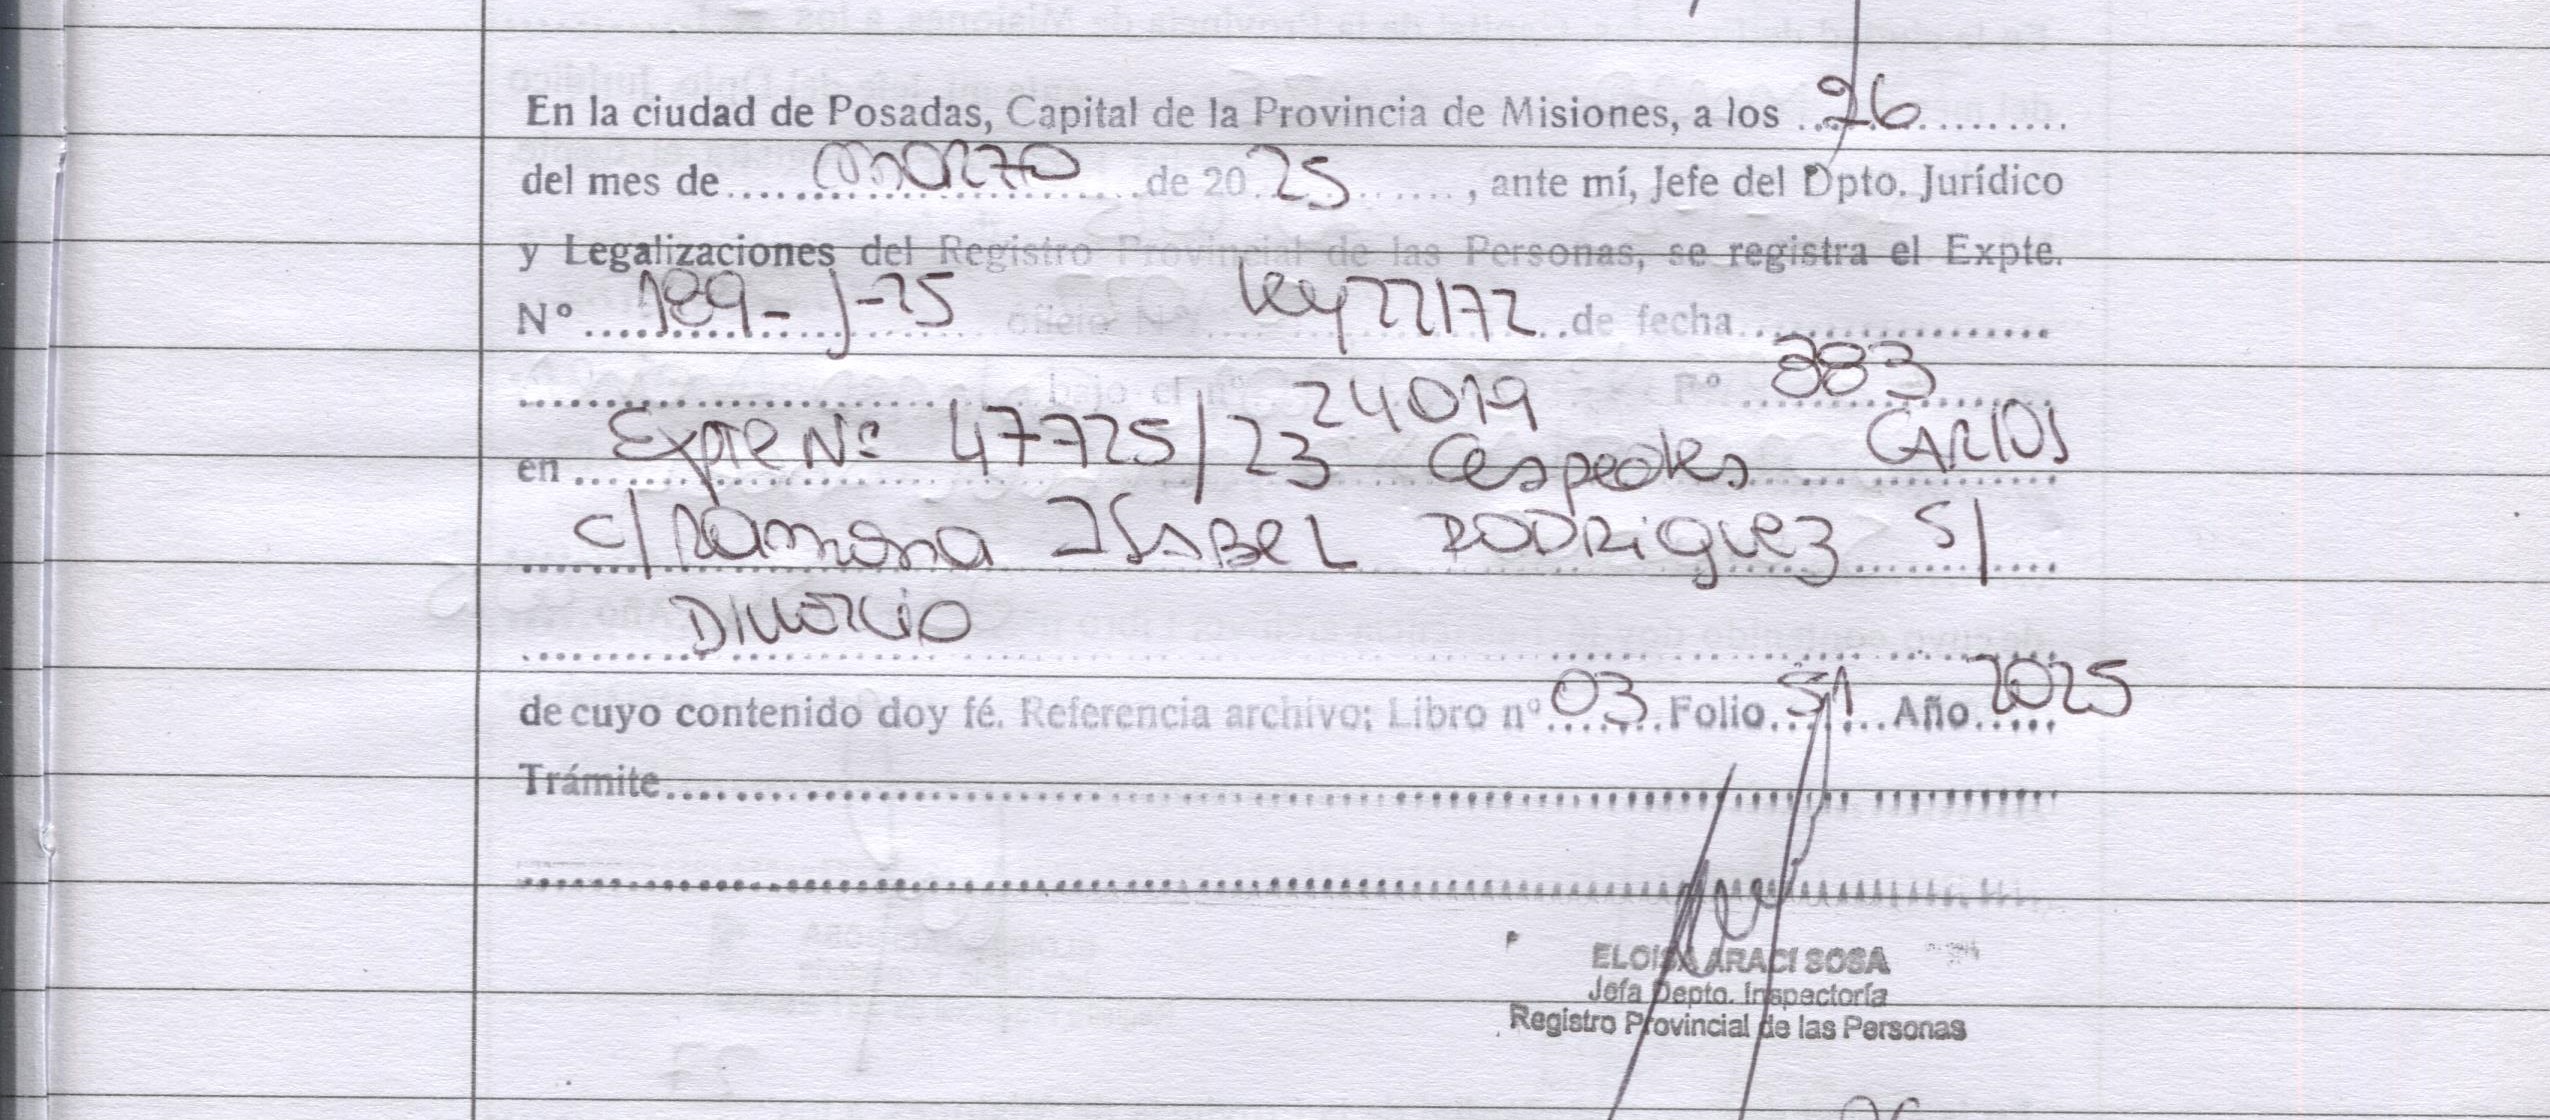 En la ciudad de Posadas, Capital de la Provincia de Misiones, a los 26
del mes de marzo de 2025, ante mí, Jefe del Dpto. Jurídico
y Legalizaciones del Registro Provincial de las Personas, se registra el Expte.
Nº 189-J-25 oficio Nº Ley 22172 de fecha
bajo el nº 24019 Fº 383
en Expte Nº 47725/23 Cespedes CARLOS
c/ Ramona ISABEL RODRIGUEZ S/
DIVORCIO
de cuyo contenido doy fé. Referencia archivo: Libro nº 03 Folio 51 Año 2025
Trámite
ELOISA ARACI SOSA
Jefa Depto. Inspectoría
Registro Provincial de las Personas